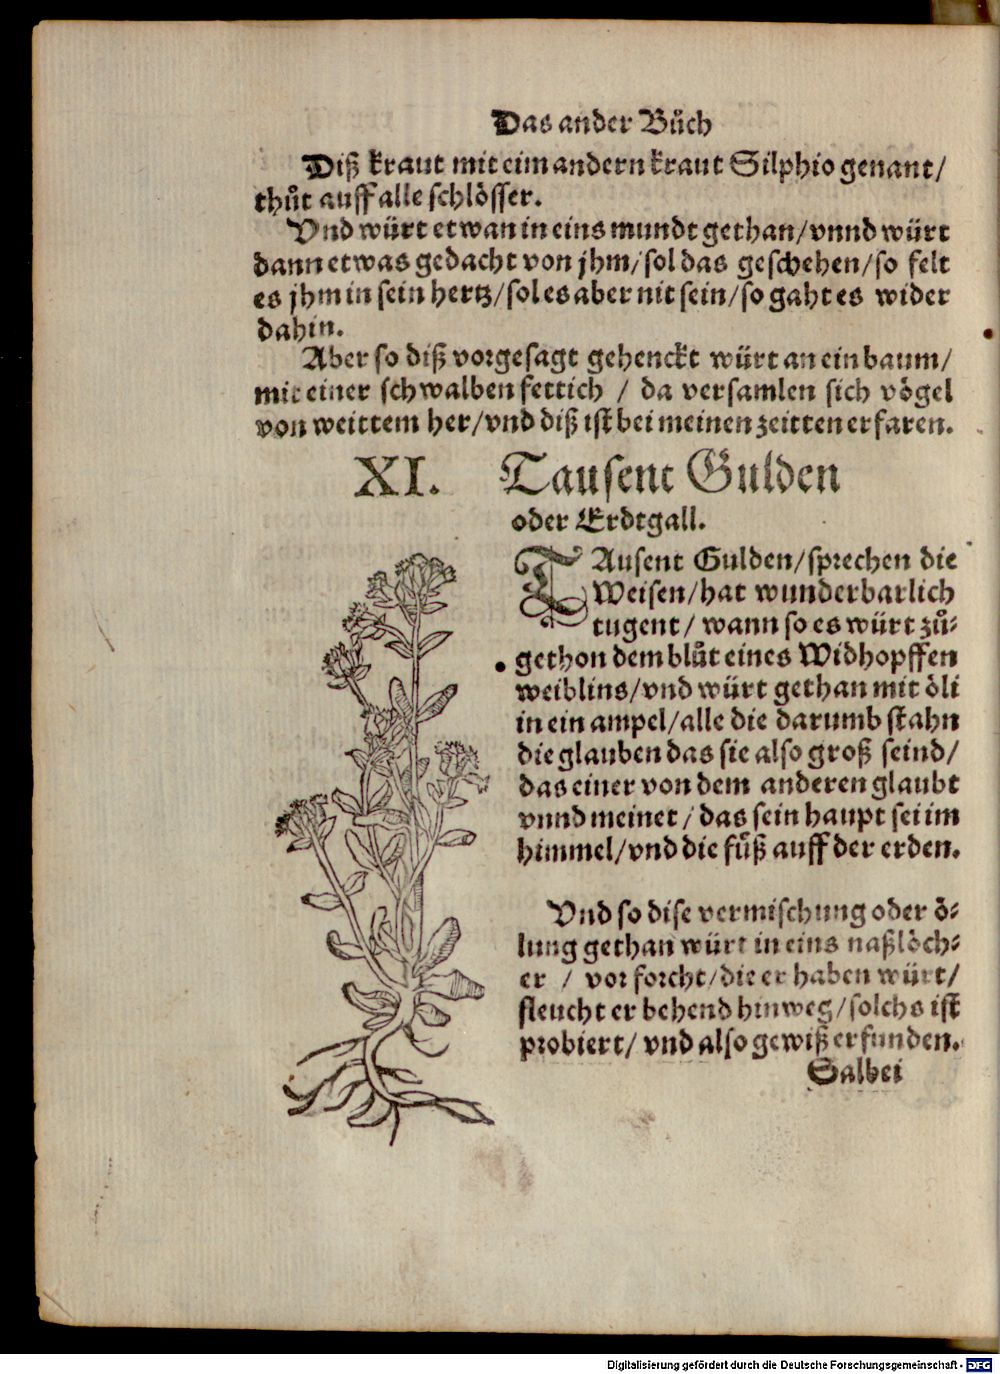 Das ander Bůch
Diß kraut mit eim andern kraut Silphio genant/
thůt auff alle schlösser.
Vnd würt etwan in eins mundt gethan/vnnd würt
dann etwas gedacht von jhm/sol das geschehen/so felt
es jhm in sein hertz/sol es aber nit sein/so gaht es wider
dahin.
Aber so diß vorgesagt gehenckt würt an ein baum/
mit einer schwalben fettich / da versamlen sich vögel
von weittem her/vnd diß ist bei meinen zeitten erfaren.
XI. Tausent Gulden
oder Erdtgall.
TAusent Gulden/sprechen die
Weisen/hat wunderbarlich
tugent/ wann so es würt zů⸗
gethon dem blůt eines Widhopffen
weiblins/vnd würt gethan mit öli
in ein ampel/alle die darumb stahn
die glauben das sie also groß seind/
das einer von dem anderen glaubt
vnnd meinet/ das sein haupt sei im
himmel/vnd die füß auff der erden.
Vnd so dise vermischung oder ö⸗
lung gethan würt in eins naßlöch⸗
er / vor forcht/die er haben würt/
fleucht er behend hinweg/solchs ist
probiert/ vnd also gewiß erfunden.
Salbei
Digitalisierung gefördert durch die Deutsche Forschungsgemeinschaft - DFG